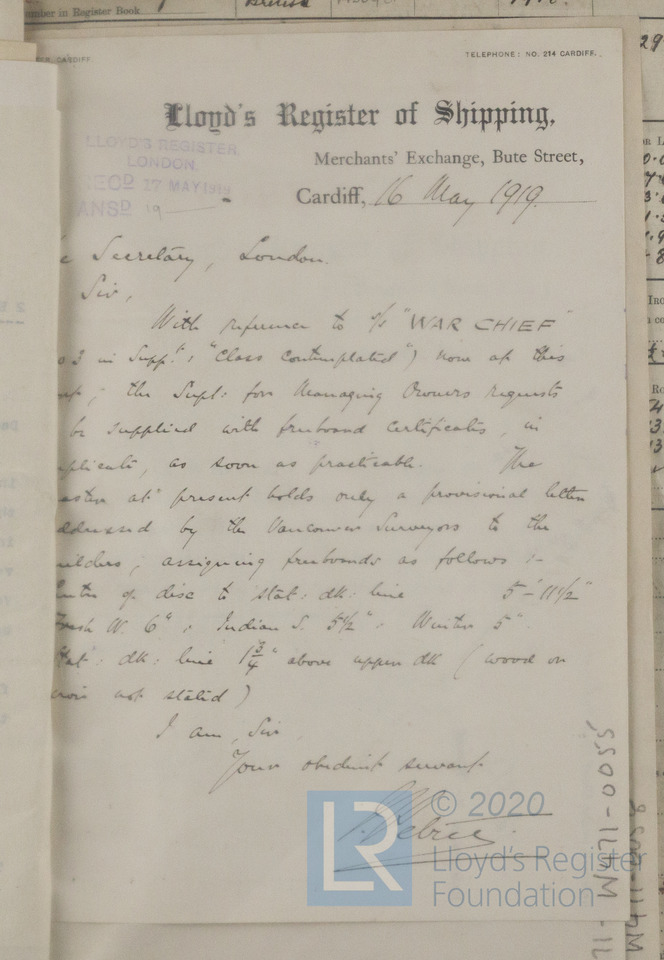 umber in Register Book
British
29
CARDIFF
TELEPHONE: NO. 214 CARDIFF.
Lloyd's Register of Shipping,
Merchants' Exchange, Bute Street,
Cardiff, 16 May 1919.
LLOYD'S REGISTER
LONDON.
RECD 17 MAY 1919
ANSD 19
e Secretary, London.
Sir,
With reference to s/s "WAR CHIEF"
3 in Suppt: "Class Contemplated") now at this
the Supt: for Managing Owners requests
be supplied with freeboard certificates, in
plicate, as soon as practicable. The
aster at present holds only a provisional letter
ddressed by the Vancouver Surveyors to the
uilders, assigning freeboards as follows :-
entre of disc to stat: dk: line 5'-11½"
Fresh W. 6" : Indian S. 5½" : Winter 5"
Stat: dk: line 1¾" above upper dk (wood or
iron not stated)
I am, Sir,
Your obedient servant
© 2020
LR
Lloyd's Register
Foundation
71-W471-0055